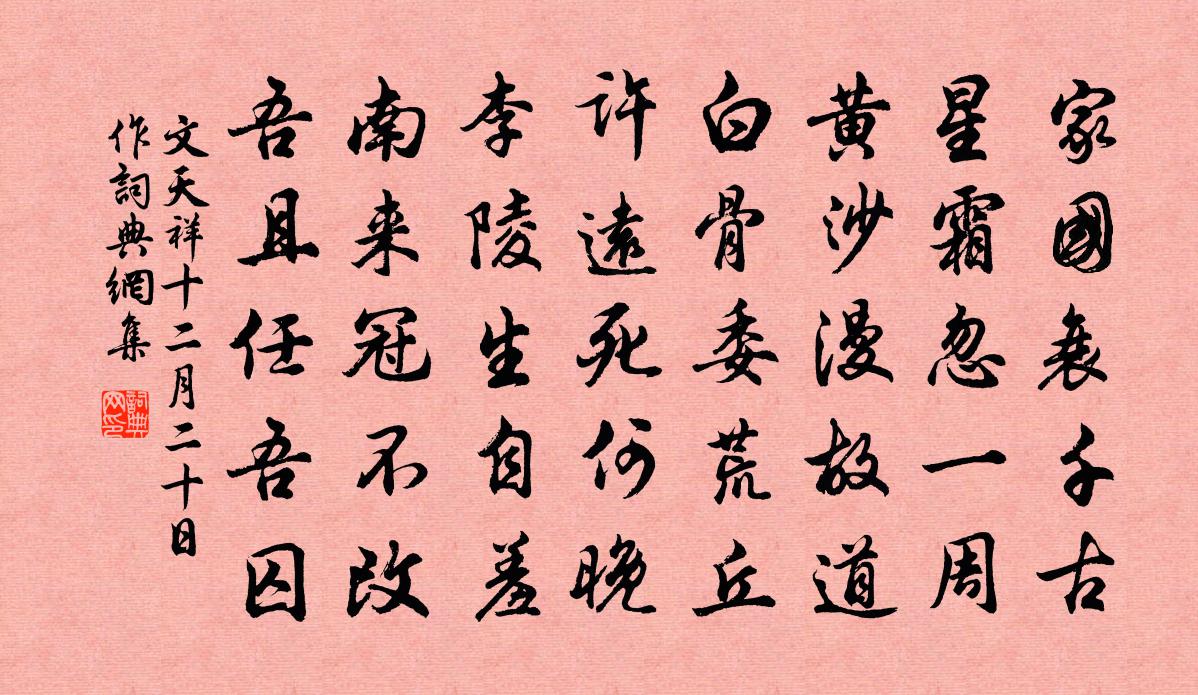 家國丧千古
星霜忽一周
黄沙漫故道
白骨委荒丘
許遠死何晚
李陵生自羞
南来冠不改
吾且任吾囚
文天祥十二月二十日
作詞典網集
詞典
网印